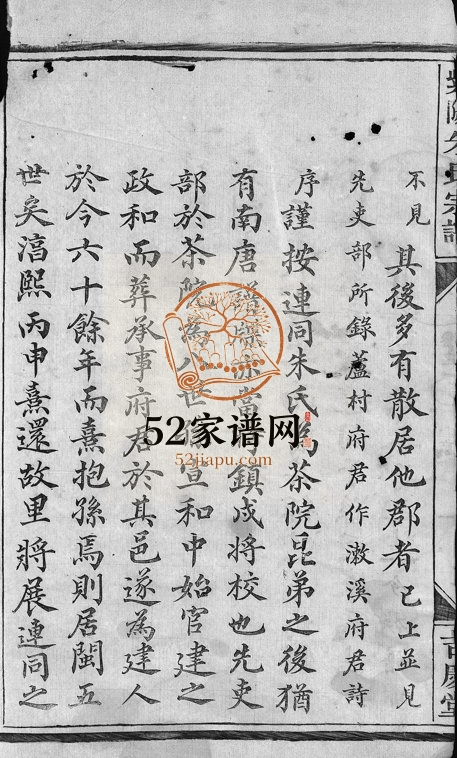 不見 其後多有散居他郡者 已上並見
先吏部所錄蘆村府君作漱溪府君詩
序謹按連同朱氏為茶院昆弟之後猶
有南唐譜牒亦當鎮戍將校也先吏
部於茶院為八世宣和中始官建之
政和而葬承事府君於其邑遂為建人
於今六十餘年而熹抱孫焉則居閩五
世矣湻熙丙申熹還故里將展連同之
52家谱网
52jiapu.com